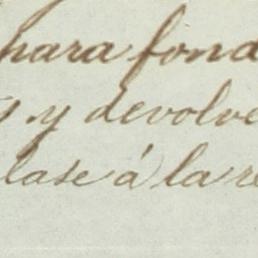 para fond
s. y devolve
lase á la re